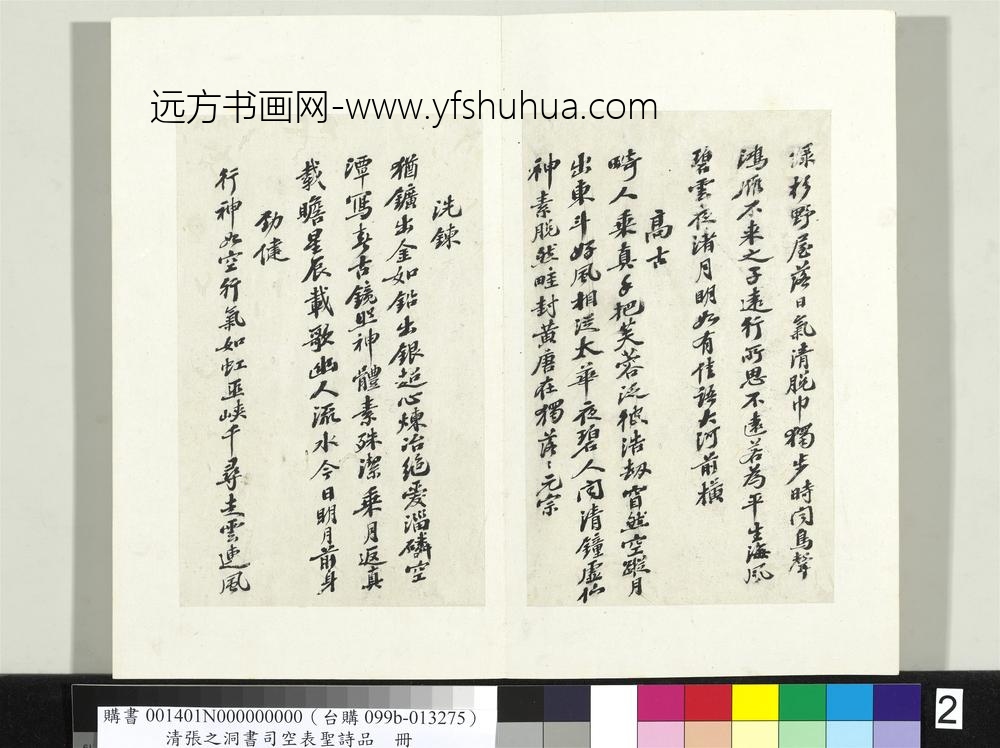 远方书画网-www.yfshuhua.com
綠杉野屋落日氣清脫巾獨步時聞鳥聲
鴻雁不來之子遠行所思不遠若為平生海風
碧雲夜渚月明如有佳語大河前橫
高古
畸人乘真手把芙蓉泛彼浩劫窅然空蹤月
出東斗好風相從太華夜碧人聞清鐘虛佇
神素脫然畦封黃唐在獨落〻元宗
洗鍊
猶鑛出金如鉛出銀超心煉冶絕愛淄磷空
潭寫春古鏡照神體素殊潔乘月返真
載瞻星辰載歌幽人流水今日明月前身
勁健
行神如空行氣如虹巫峽千尋走雲連風
購書 001401N000000000（台購 099b-013275）
清張之洞書司空表聖詩品 冊
2